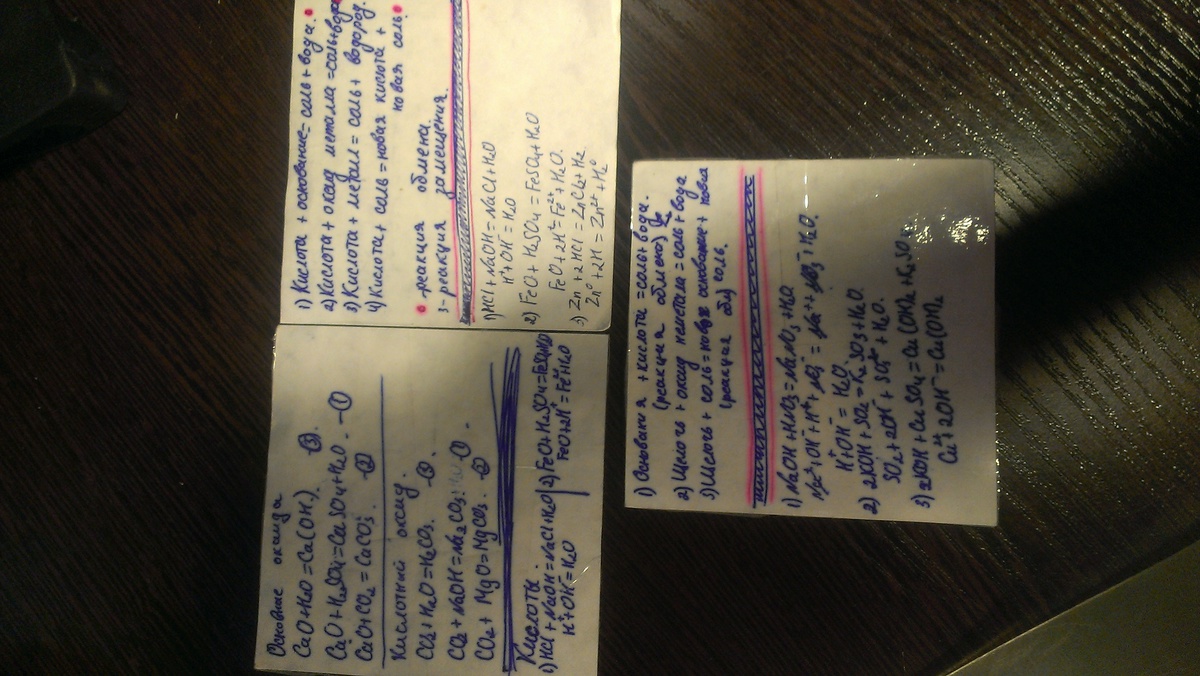 1) Кислота + основание = соль + вода.
2) Кислота + оксид метала = соль + вода
3) Кислота + метал = соль + водород.
4) Кислота + соль = новая кислота +
новая соль
- реакция обмена.
3 - реакция замещения.
1) HCl + NaOH = NaCl + H2O
H⁺ + OH⁻ = H2O
2) FeO + H2SO4 = FeSO4 + H2O
FeO + 2H⁺ = Fe²⁺ + H2O.
3) Zn + 2HCl = ZnCl2 + H2
Zn⁰ + 2H = Zn²⁺ + H2⁰
Основные оксида
CaO + H2O = Ca(OH)2 ③.
CaO + H2SO4 = CaSO4 + H2O. - ①
CaO + CO2 = CaCO3. ②
Кислотный оксид.
CO2 + H2O = H2CO3. - ③
CO2 + NaOH = Na2CO3 - ①
CO2 + MgO = MgCO3. - ②
Кислоты.
1) HCl + NaOH = NaCl + H2O
H⁺ + OH⁻ = H2O
2) FeO + H2SO4 = FeSO4 + H2O
FeO + 2H⁺ = Fe²⁺ + H2O
1) Основания + кислота = соль + вода.
(реакция обмена)
2) Щелочь + оксид неметала = соль + вода
3) Щелочь + соль = новое основание + новая
(реакция об) соль.
1) NaOH + HNO3 = NaNO3 + H2O
H⁺ + OH⁻ = H2O.
2) 2KOH + SO2 = K2SO3 + H2O.
3) 2KOH + CuSO4 = Cu(OH)2 + K2SO4
Cu²⁺ + 2OH⁻ = Cu(OH)2